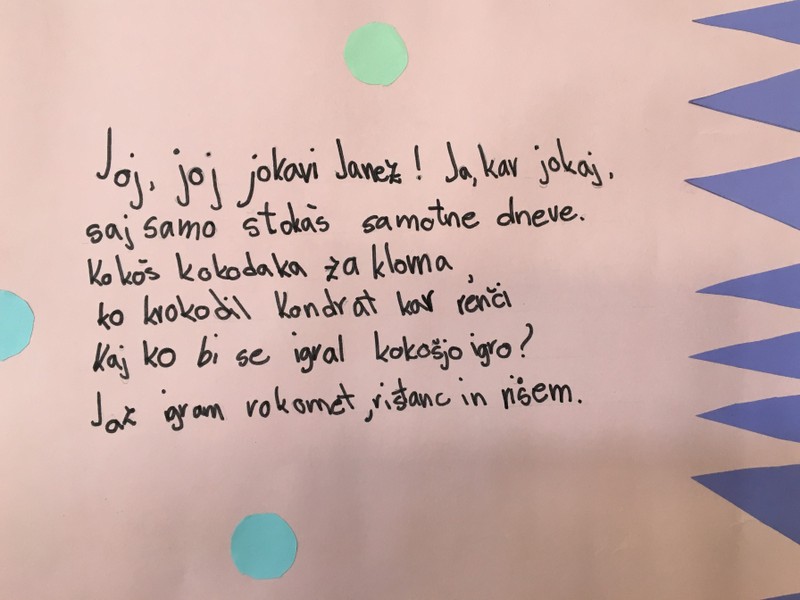 Joj, joj jokavi Janez! Ja, kar jokaj,
saj samo stokaš samotne dneve.
Kokoš kokodaka za kloma,
ko krokodil Kondrat kar renči
Kaj ko bi se igral kokošjo igro?
Jaz igram rokomet, ristanc in rišem.